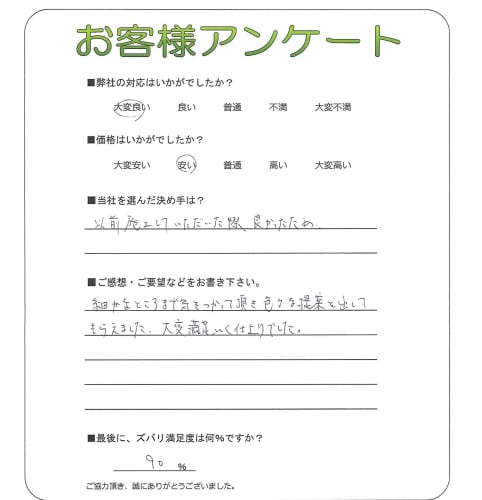 お客様アンケート
■弊社の対応はいかがでしたか？
大変良い 良い 普通 不満 大変不満
■価格はいかがでしたか？
大変安い 安い 普通 高い 大変高い
■当社を選んだ決め手は？
以前施工していただいた際、良かったため.
■ご感想・ご要望などをお書き下さい。
細かなところまで気をつかって頂き色々な提案を出して
もらえました、大変満足いく仕上りでした。
■最後に、ズバリ満足度は何％ですか？
90 ％
ご協力頂き、誠にありがとうございました。